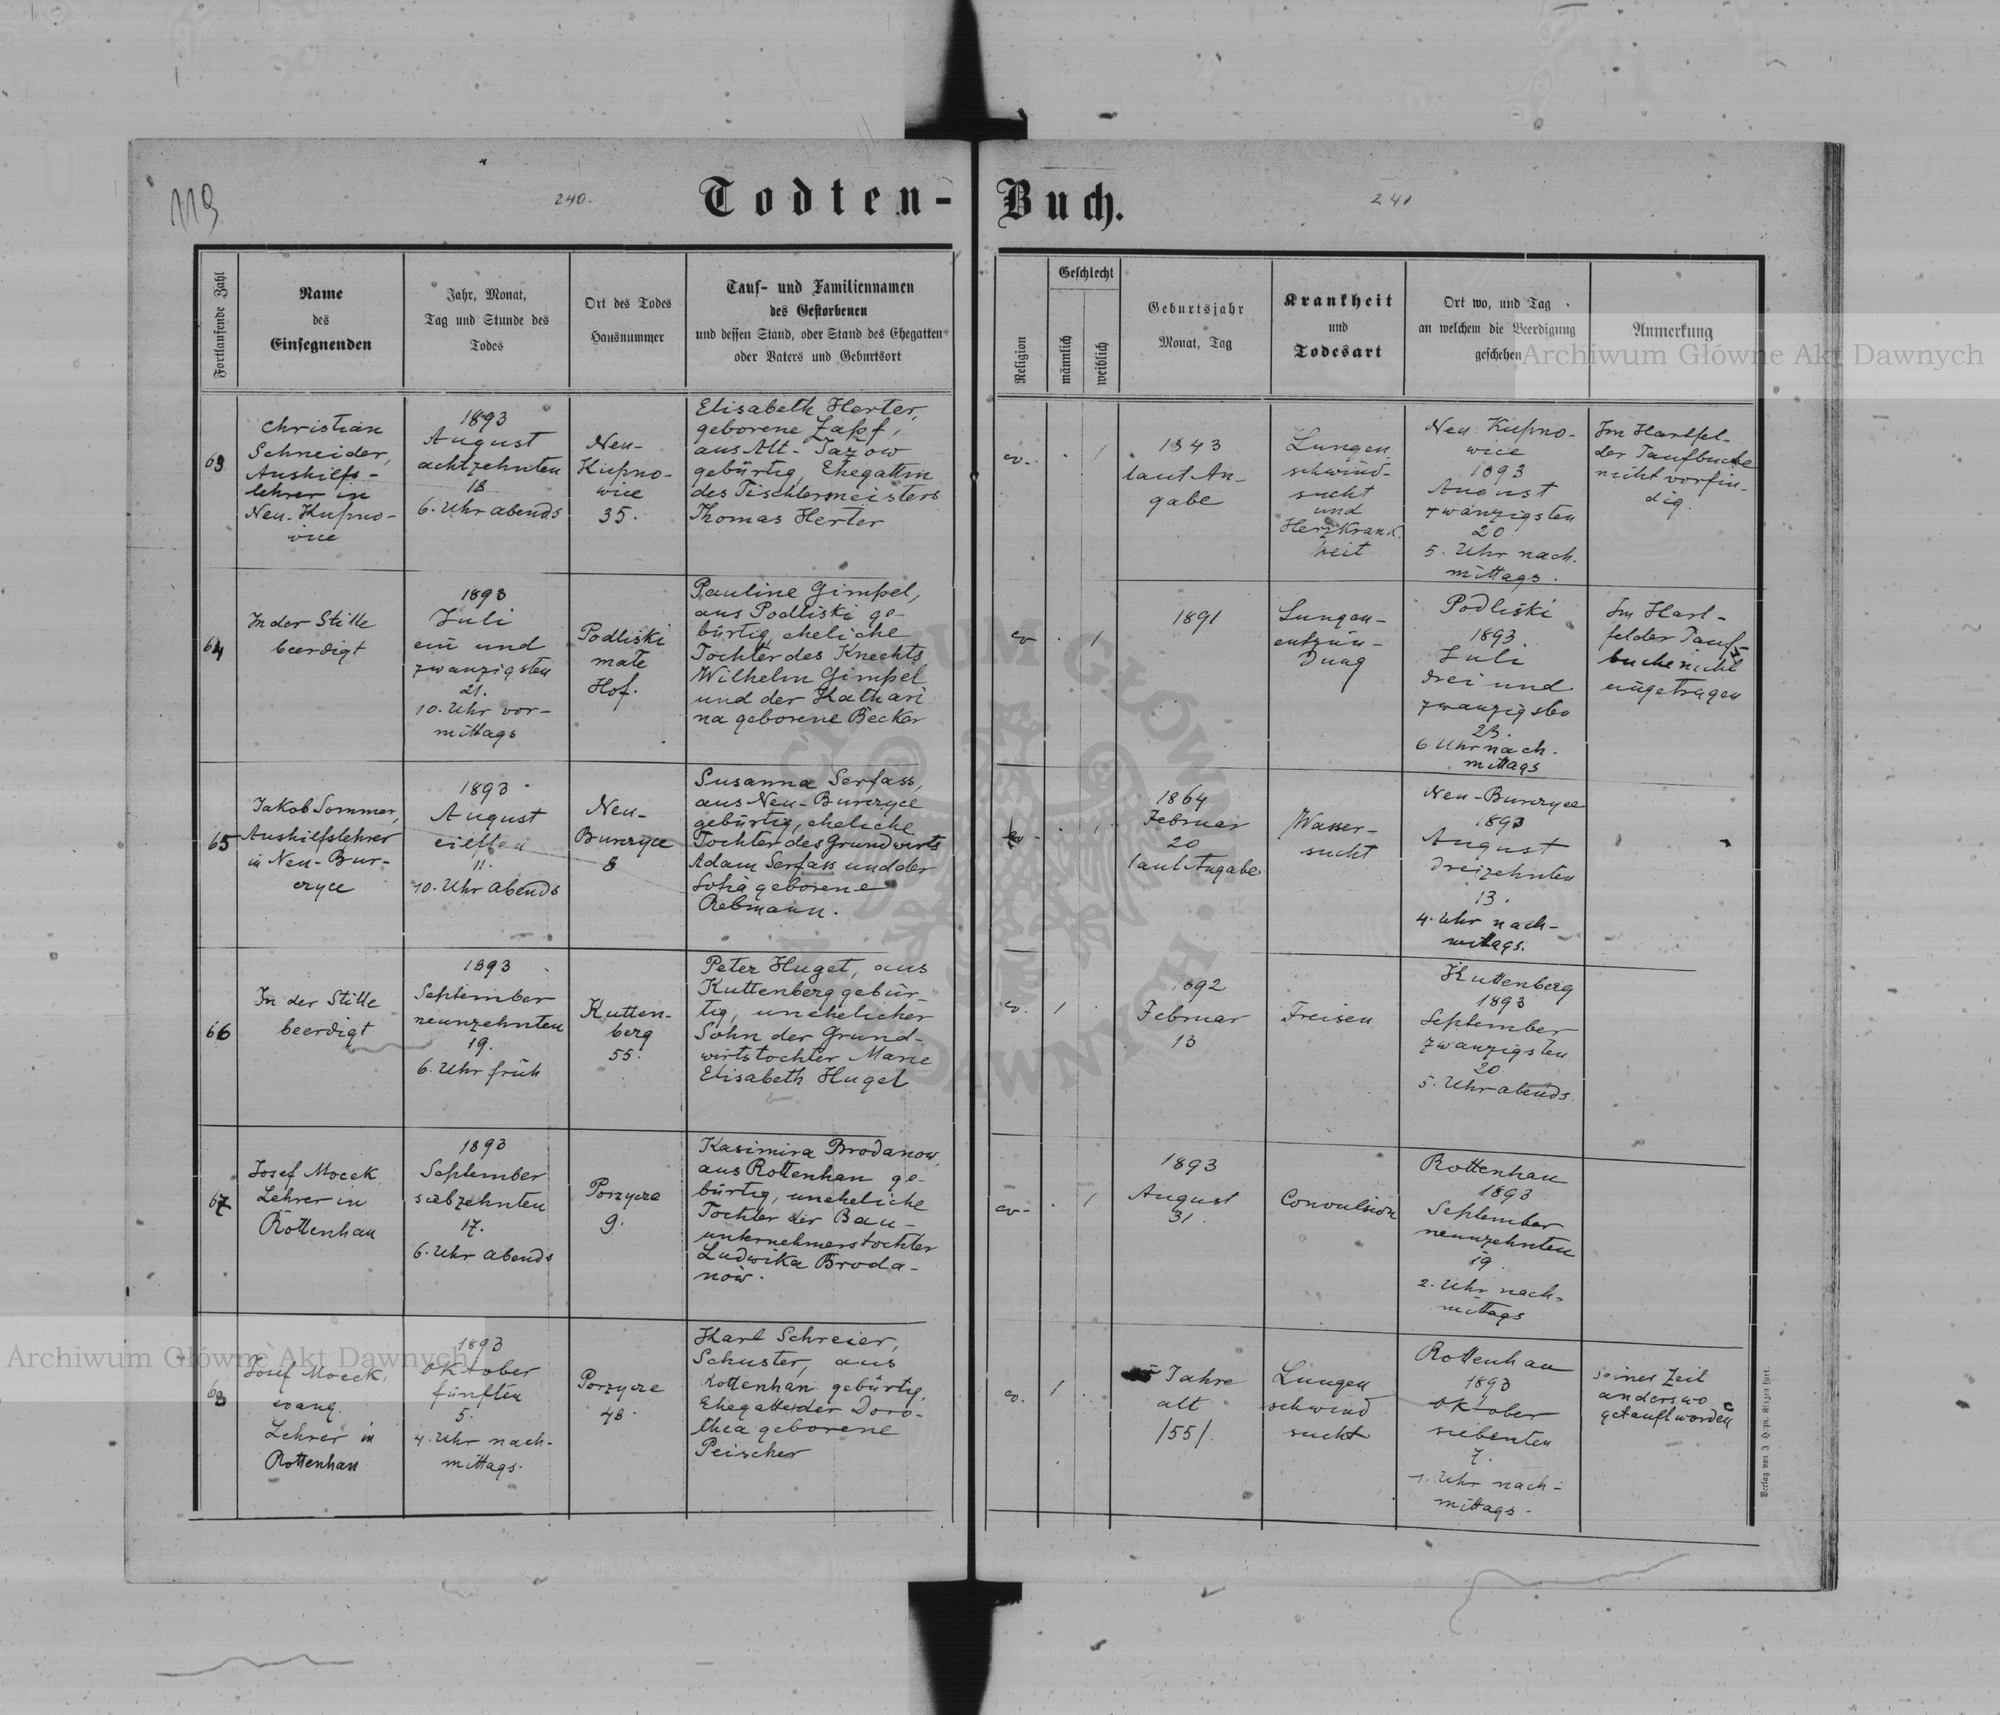 119
240.
Todten-
Buch.
241
Fortlaufende Zahl
Name
des
Einsegnenden
Jahr, Monat,
Tag und Stunde des
Todes
Ort des Todes
Hausnummer
Tauf- und Familiennamen
des Gestorbenen
und dessen Stand, oder Stand des Ehegatten
oder Vaters und Geburtsort
Religion
Geschlecht
männlich
weiblich
Geburtsjahr
Monat, Tag
Krankheit
und
Todesart
Ort wo, und Tag
an welchem die Beerdigung
geschehen
Anmerkung
Archiwum Główne Akt Dawnych
63
Christian
Schneider,
Aushilfs-
lehrer in
Neu-Kupno-
wice
1893
August
achtzehnten
18
6. Uhr abends
Neu-
Kupno-
wice
35.
Elisabeth Herter,
geborene Zapf,
aus Alt-Jazow
gebürtig, Ehegattin
des Tischlermeisters
Thomas Herter
ev.
1
1843
laut An-
gabe
Lungen
schwind-
sucht
und
Herzkrank
heit
Neu Kupno-
wice
1893
August
zwanzigsten
20
5. Uhr nach.
mittags.
Im Hartfel-
der Taufbuche
nicht vorfin-
dig.
64
In der Stille
beerdigt
1893
Juli
ein und
zwanzigsten
21.
10. Uhr vor-
mittags
Podliski
małe
Hof.
Pauline Gimpel,
aus Podliski ge-
bürtig, eheliche
Tochter des Knechts
Wilhelm Gimpel
und der Kathari
na geborene Becker
ev
1
1891
Lungen-
entzün-
dung
Podliski
1893
Juli
drei und
zwanzigsten
23.
6 Uhr nach.
mittags
Im Hart-
felder Tauf-
buche nicht
eingetragen
65
Jakob Sommer,
Aushilfslehrer
in Neu-Bur-
czyce
1893
August
eilften
11.
10. Uhr abends
Neu-
Burczyce
8
Susanna Serfass,
aus Neu-Burczyce
gebürtig, eheliche
Tochter des Grundwirts
Adam Serfass und der
Sofia geborene
Rebmann.
ev.
1
1864
Februar
20
laut Angabe
Wasser-
sucht
Neu-Burczyce
1893
August
dreizehnten
13.
4. Uhr nach-
mittags.
66
In der Stille
beerdigt
1893
September
neunzehnten
19.
6. Uhr früh
Kutten-
berg
55.
Peter Huget, aus
Kuttenberg gebür-
tig, unehelicher
Sohn der Grund-
wirtstochter Marie
Elisabeth Huget
ev.
1
1892
Februar
13
Freisen
Kuttenberg
1893
September
zwanzigsten
20
5. Uhr abends.
67
Josef Mocek,
Lehrer in
Rottenhan
1893
September
siebzehnten
17.
6. Uhr abends
Porzycze
9.
Kasimira Brodanow,
aus Rottenhan ge-
bürtig, uneheliche
Tochter der Bau-
unternehmerstochter
Ludwika Broda-
now.
ev.
1
1893
August
31.
Convulsion
Rottenhan
1893
September
neunzehnten
19
2. Uhr nach-
mittags
68
Josef Mocek,
evang.
Lehrer in
Rottenhan
1893
Oktober
fünften
5.
4. Uhr nach-
mittags.
Porzycze
48.
Karl Schreier,
Schuster, aus
Rottenhan gebürtig,
Ehegatte der Doro-
thea geborene
Peischer
ev.
1
Jahre
alt
/55/.
Lungen
schwind
sucht
Rottenhan
1893
Oktober
siebenten
7.
1. Uhr nach-
mittags.
seiner Zeit
anderswo
getauft worden
Archiwum Główne Akt Dawnych